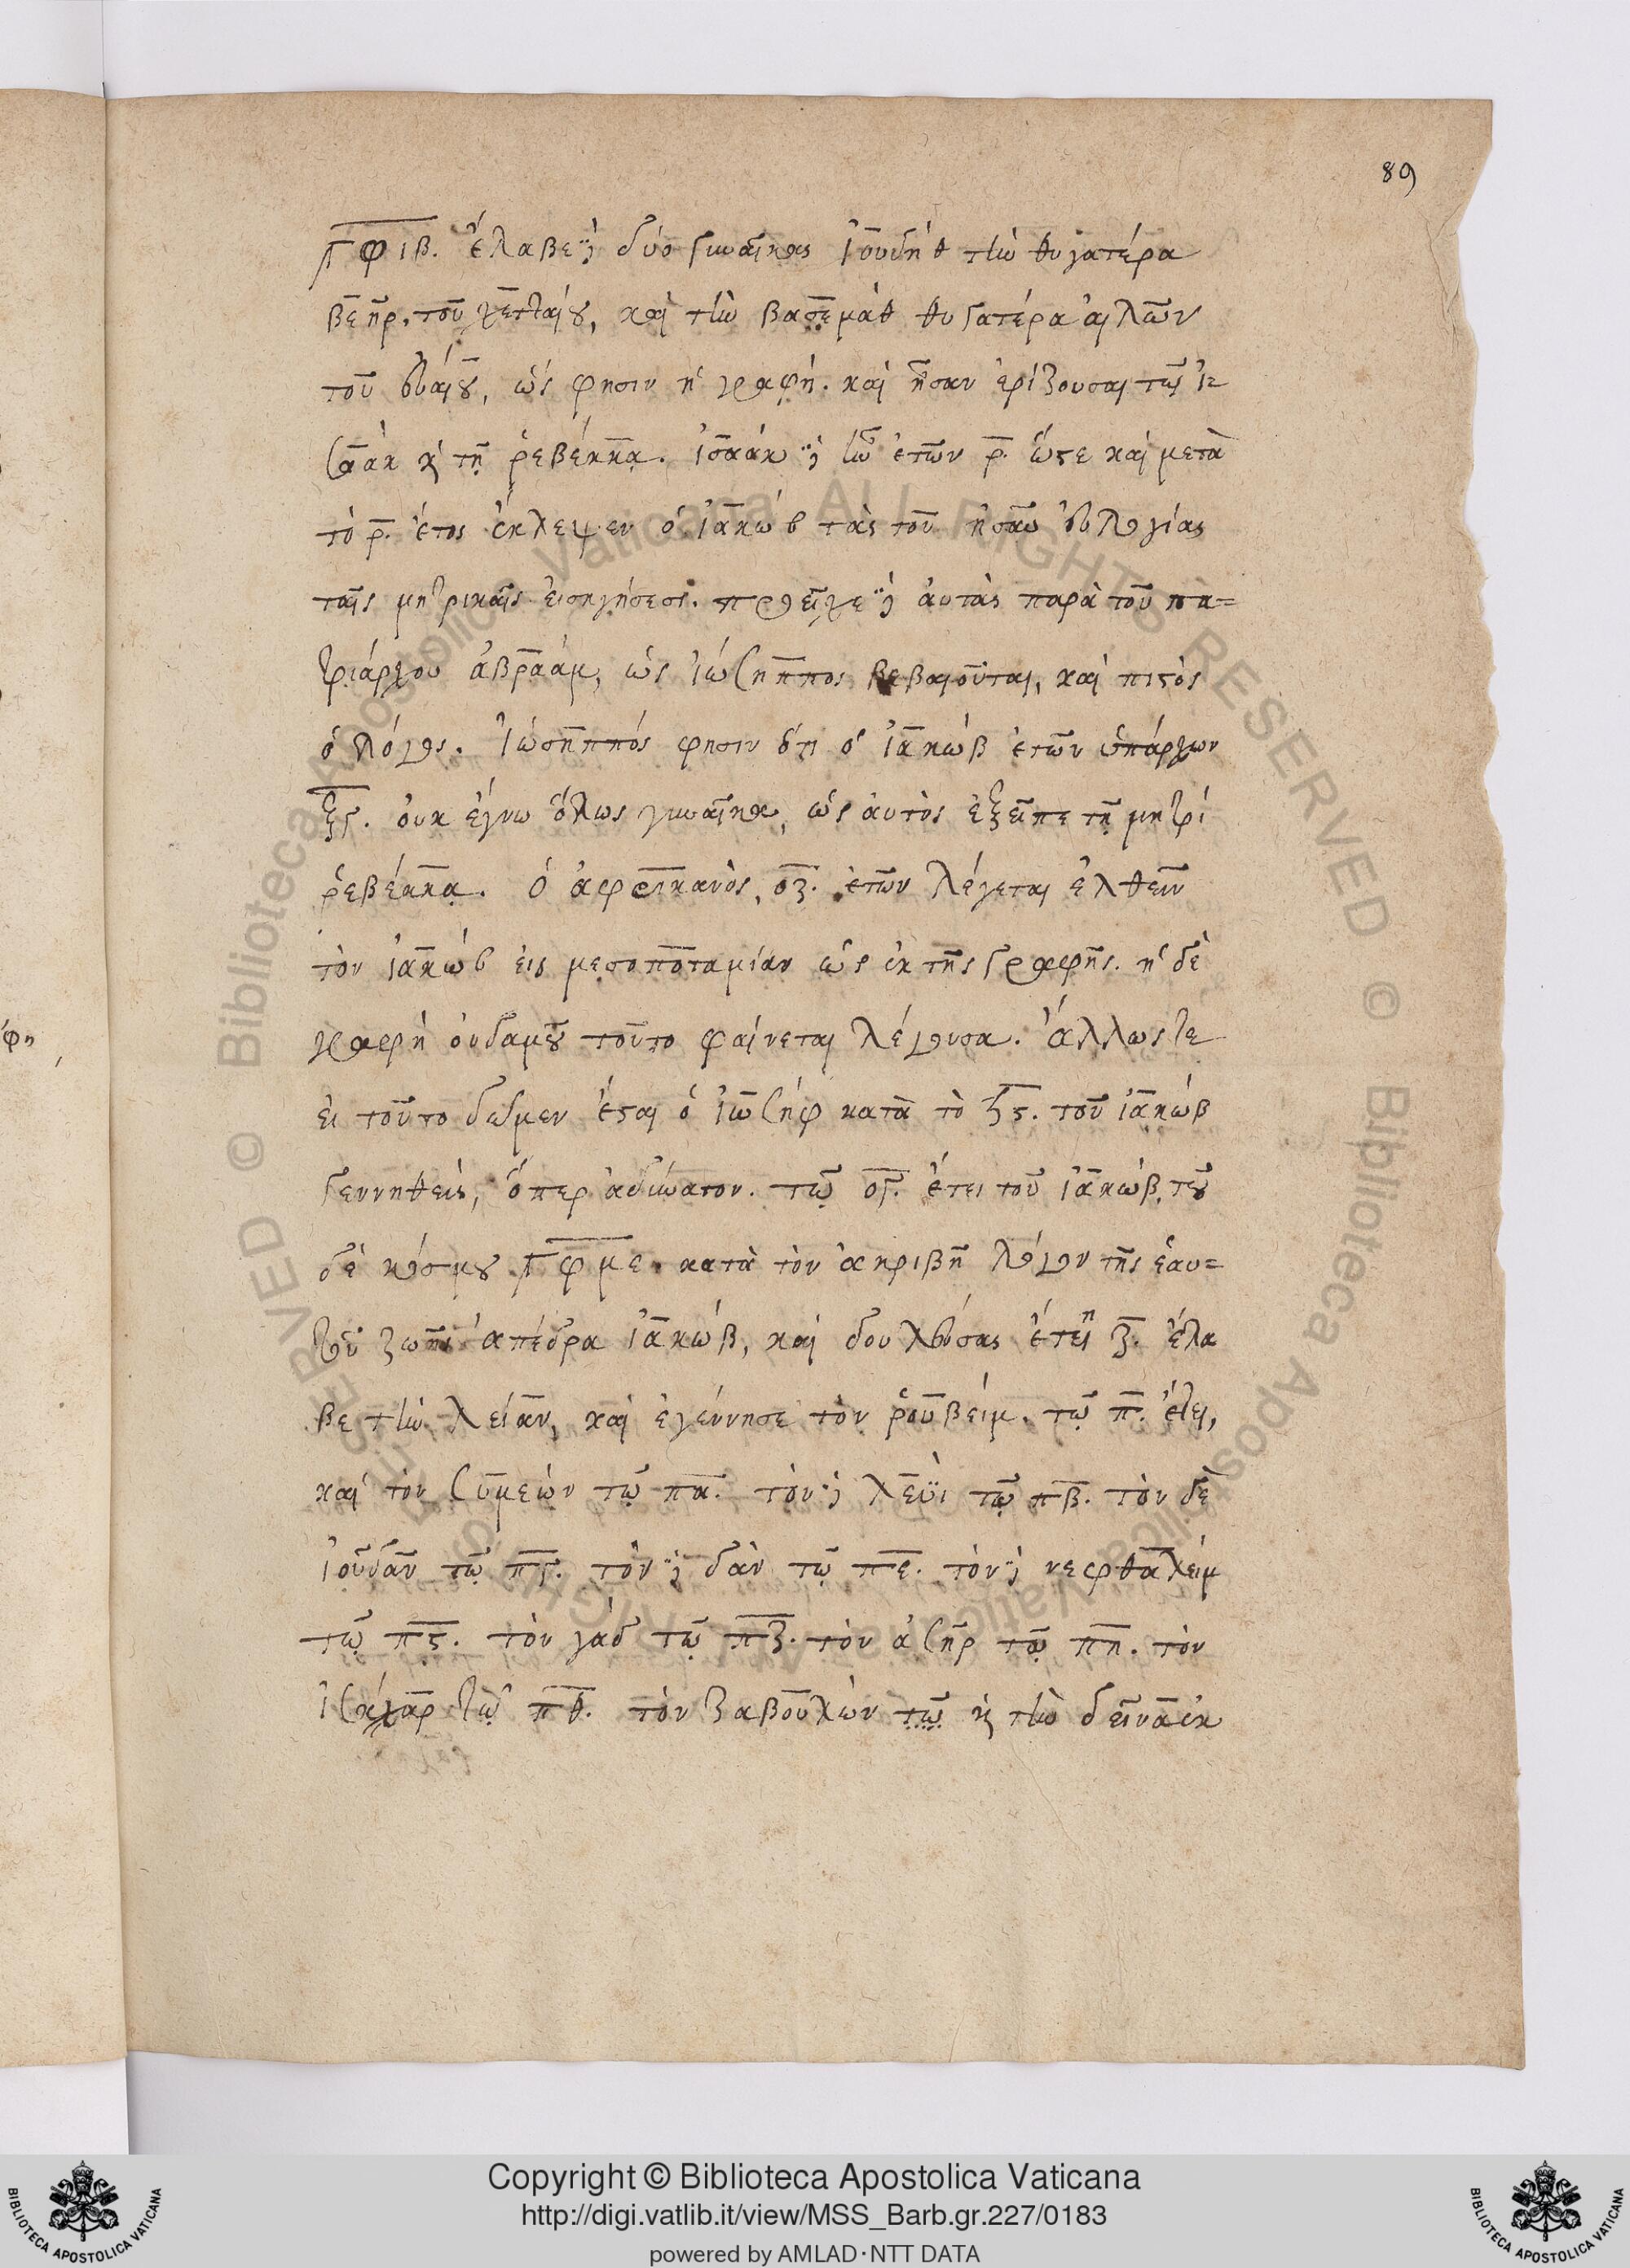 89
͵γφιβ. ἔλαβε δὲ δύο γυναῖκας ἰουδὴθ τὴν θυγατέρα
βεὴρ, τοῦ χετταίου, καὶ τὴν βασεμὰθ θυγατέρα αἰλὼν
τοῦ εὐαίου, ὥς φησιν ἡ γραφή. καὶ ἦσαν ἐρίζουσαι τῷ ἰ-
σαὰκ καὶ τῇ ῥεβέκκᾳ. ἰσαάκ δὲ ἦν ἐτῶν ρ. ὥστε καὶ μετὰ
τὸ ρ. ἔτος ἔκλεψεν ὁ ἰακώβ τὰς τοῦ ἠσαῦ εὐλογίας
ταῖς μητρικαῖς εἰσηγήσεσι. προεῖχε δὲ αὐτὰς παρὰ τοῦ πα=
τριάρχου ἀβραάμ, ὡς ἰώσηππος βεβαιοῦται, καὶ πιστὸς
ὁ λόγος. ἰώσηππός φησιν ὅτι ὁ ἰακὼβ ἐτῶν ὑπάρχων
ξγ. οὐκ ἔγνω ὅλως γυναῖκα, ὡς αὐτὸς ἐξεῖπε τῇ μητρί
ῥεβέκκᾳ. ὁ ἀφρικανὸς, οζ. ἐτῶν λέγεται ἐλθεῖν
τὸν ἰακώβ εἰς μεσοποταμίαν ὡς ἐκ τῆς γραφῆς. ἡ δὲ
γραφὴ οὐδαμοῦ τοῦτο φαίνεται λέγουσα. ἄλλωστε
εἰ τοῦτο δῶμεν ἔσται ὁ ἰωσήφ κατὰ τὸ ϟς. τοῦ ἰακώβ
γεννηθεὶς, ὅπερ ἀδύνατον. τῷ ογ. ἔτει τοῦ ἰακώβ, τοῦ
δὲ κόσμου ͵γφμε. κατὰ τὸν ἀκριβῆ λόγον τῆς ἑαυ=
τοῦ ζωῆς ἀπέδρα ἰακώβ, καὶ δουλεύσας ἔτει η ζ. ἔλα
βε τὴν λείαν, καὶ ἐγέννησε τὸν ῥουβείμ. τῷ π. ἔτει,
καὶ τὸν συμεὼν τῷ πα. τὸν δὲ λευϊ τῷ πβ. τὸν δὲ
ἰούδαν τῷ πγ. τὸν δὲ δὰν τῷ πε. τὸν δὲ νεφθαλείμ
τῷ πς. τὸν γάδ τῷ πζ. τὸν ἀσὴρ τῷ πη. τὸν
ἰσάχαρ τῷ πθ. τὸν ζαβουλὼν τῷ καὶ τὴν δεῖνα ἐκ
φη
Copyright © Biblioteca Apostolica Vaticana
http://digi.vatlib.it/view/MSS_Barb.gr.227/0183
powered by AMLAD·NTT DATA
BIBLIOTECA APOSTOLICA VATICANA
BIBLIOTECA APOSTOLICA VATICANA
© Biblioteca Apostolica Vaticana ALL RIGHTS RESERVED
© Biblioteca Apostolica Vaticana ALL RIGHTS RESERVED